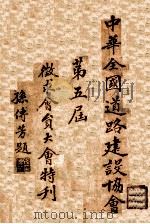 中華全國道路建設協會
第五屆
徵求會員大會特刊
孫傳芳題